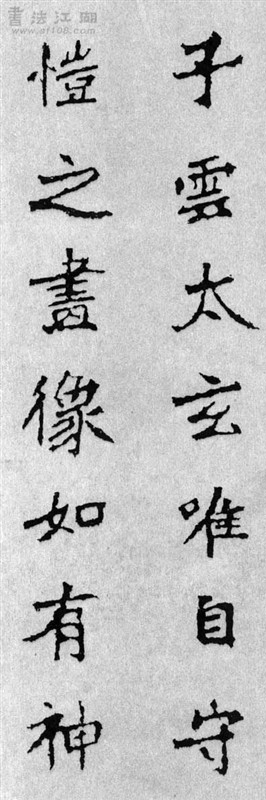 子雲太玄唯自守
愷之畫像如有神
書法江湖